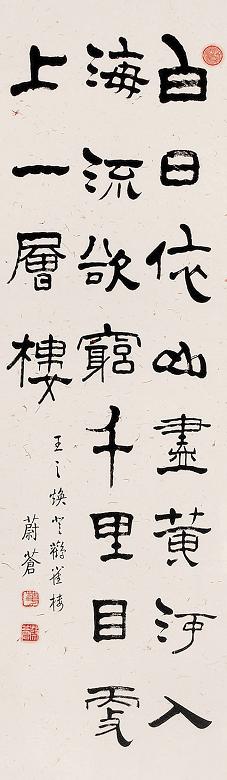 白日依山盡黃河入
海流欲窮千里目更
上一層樓
王之煥登鸛雀樓
蔚蒼